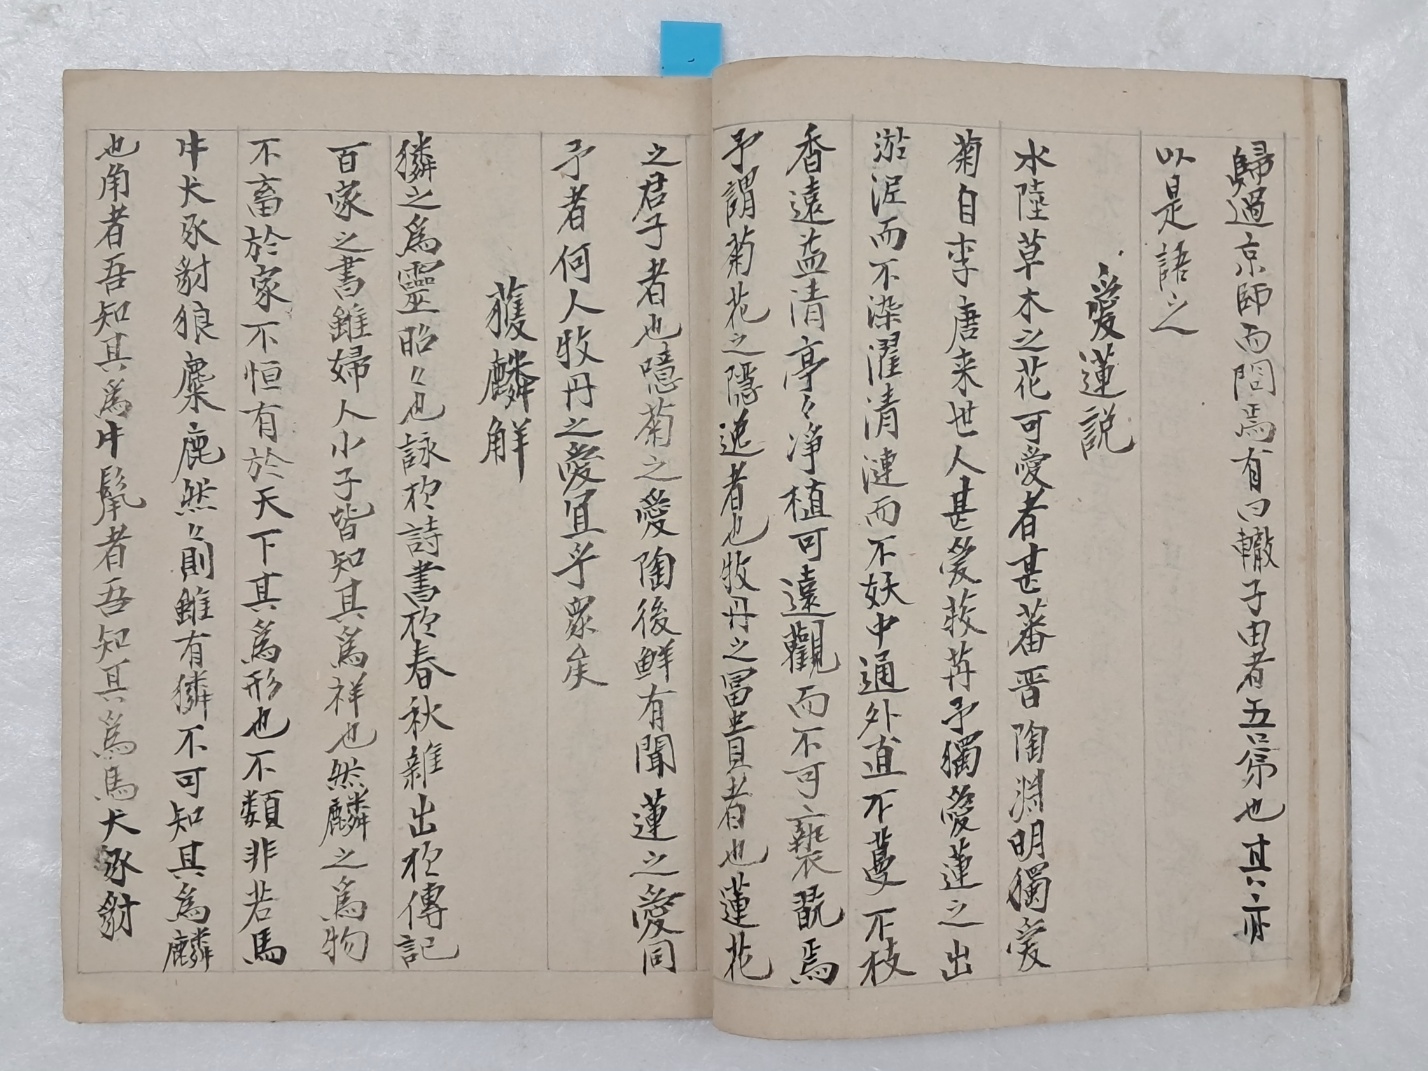 歸過京師而問焉有曰轍子由者吾弟也其亦
以是語之
愛蓮説
水陸草木之花可愛者甚蕃晋陶淵明獨愛
菊自李唐来世人甚愛牧丹予獨愛蓮之出
淤泥而不染濯清漣而不妖中通外直不蔓不枝
香遠益清亭々净植可遠觀而不可褻翫焉
予謂菊花之隱逸者也牧丹之冨貴者也蓮花
之君子者也噫菊之愛陶後鮮有聞蓮之愛同
予者何人牧丹之愛宜乎衆矣
獲麟觧
獜之爲靈昭々也詠於詩書於春秋雜出於傳記
百家之書雖婦人小子皆知其爲祥也然麟之爲物
不畜於家不恒有於天下其爲形也不類非若馬
牛犬豕豺狼麋鹿然々則雖有獜不可知其爲麟
也角者吾知其爲牛鬣者吾知其爲馬犬豕豺